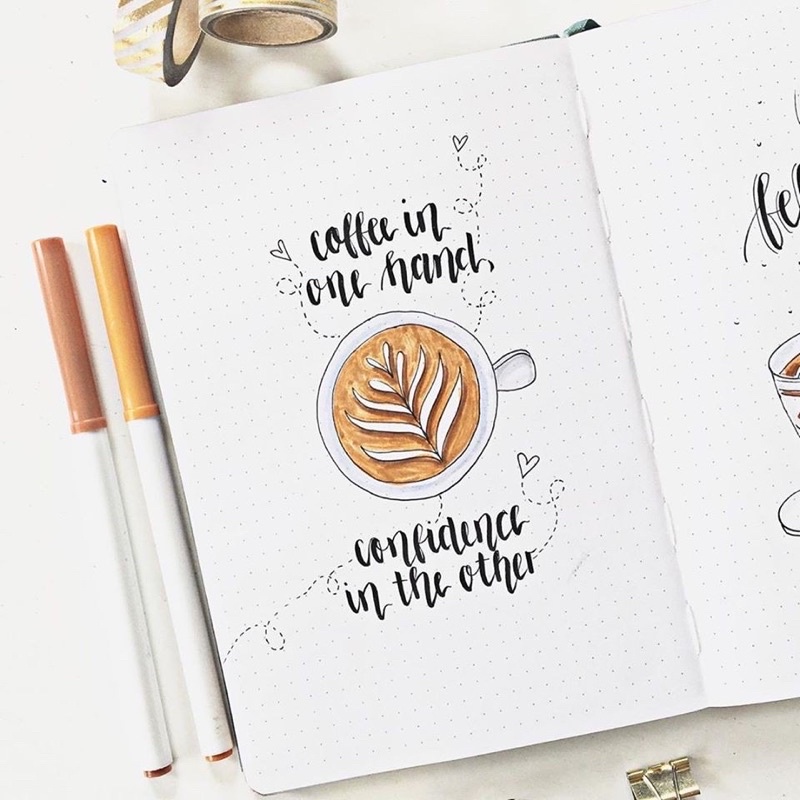 coffee in
one hand,
confidence
in the other